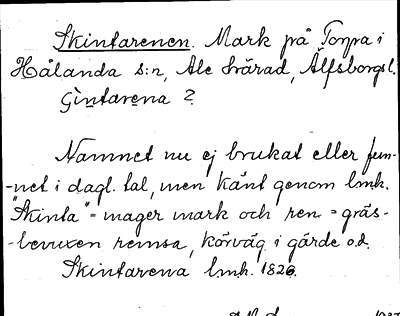 Skintarenen. Mark på Torpa i
Hålanda s:n, Ale härad, Älfsborgs l.
Gintarena ?
Namnet nu ej brukat eller fun-
-net i dagl. tal, men känt genom lmh.
"Skinta" = mager mark och ren = gräs-
-bevuxen remsa, körväg i gärde o.d.
Skintarena lmh. 1826.